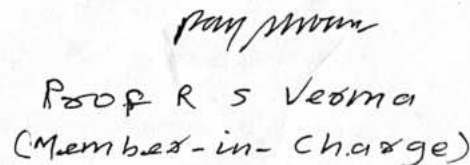 Prof R S Verma
(Member-in-Charge)